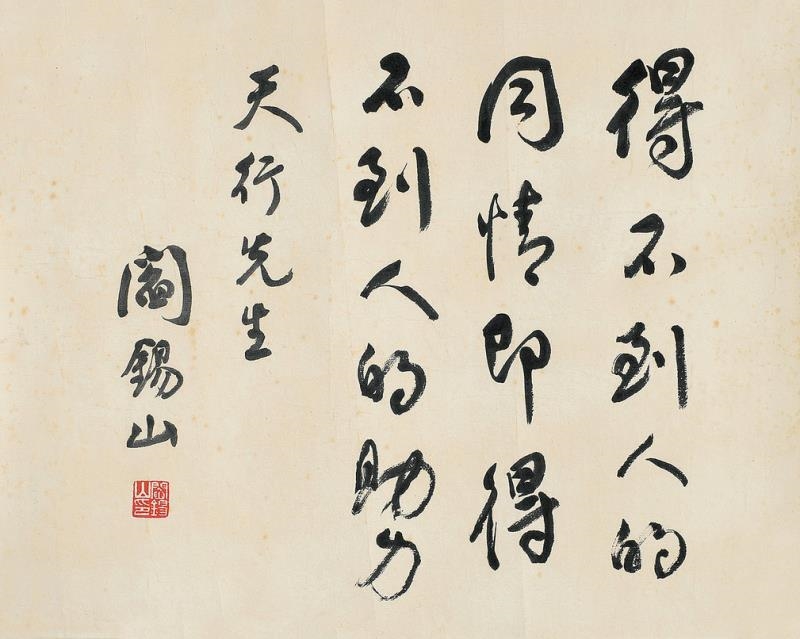 得不到人的
同情即得
不到人的助力
天行先生
閻錫山
閻錫山印